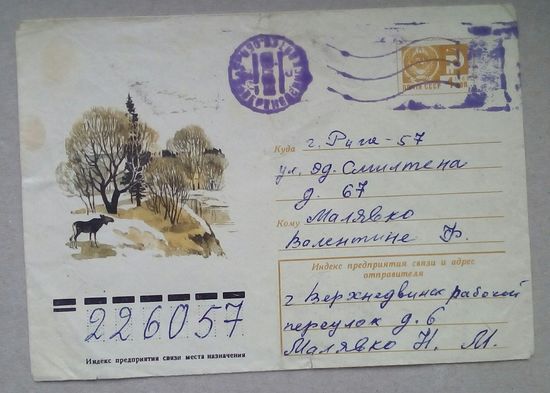 ПОЧТА СССР
Куда г. Рига-57
ул. Эд. Смилтена
д. 67
Кому Малявко
Валентине Ф.
Индекс предприятия связи и адрес
отправителя
г Верхнедвинск рабочий
переулок д. 6
Малявко Н. М.
226057
Индекс предприятия связи места назначения